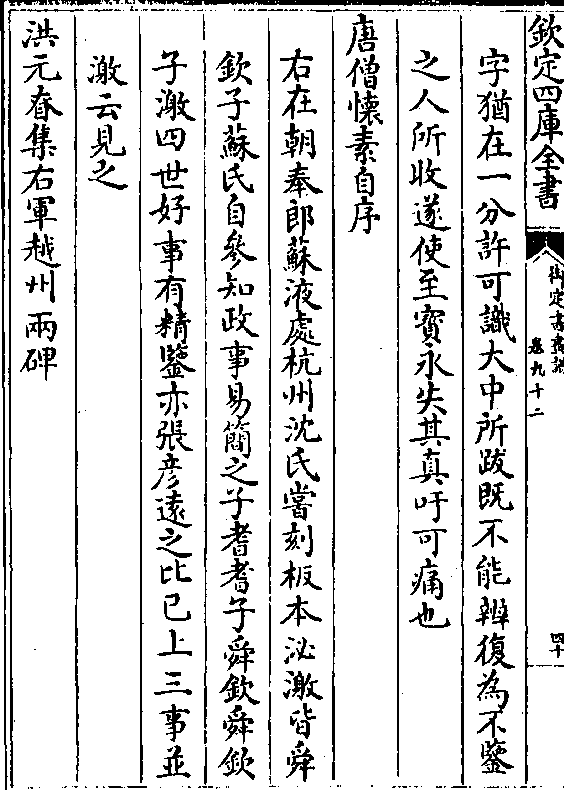 欽定四庫全書
御定書畫譜
卷九十二
四十
字猶在一分許可識大中所跋既不能辨復為不鑒
之人所收遂使至寳永失其真吁可痛也
唐僧懷素自序
右在朝奉郎蘇液處杭州沈氏嘗刻板本泌激皆舜
欽子蘇氏自參知政事易簡之子耆耆子舜欽舜欽
子激四世好事有精鑒亦張彦逺之比已上三事並
激云見之
洪元眘集右軍越州兩碑